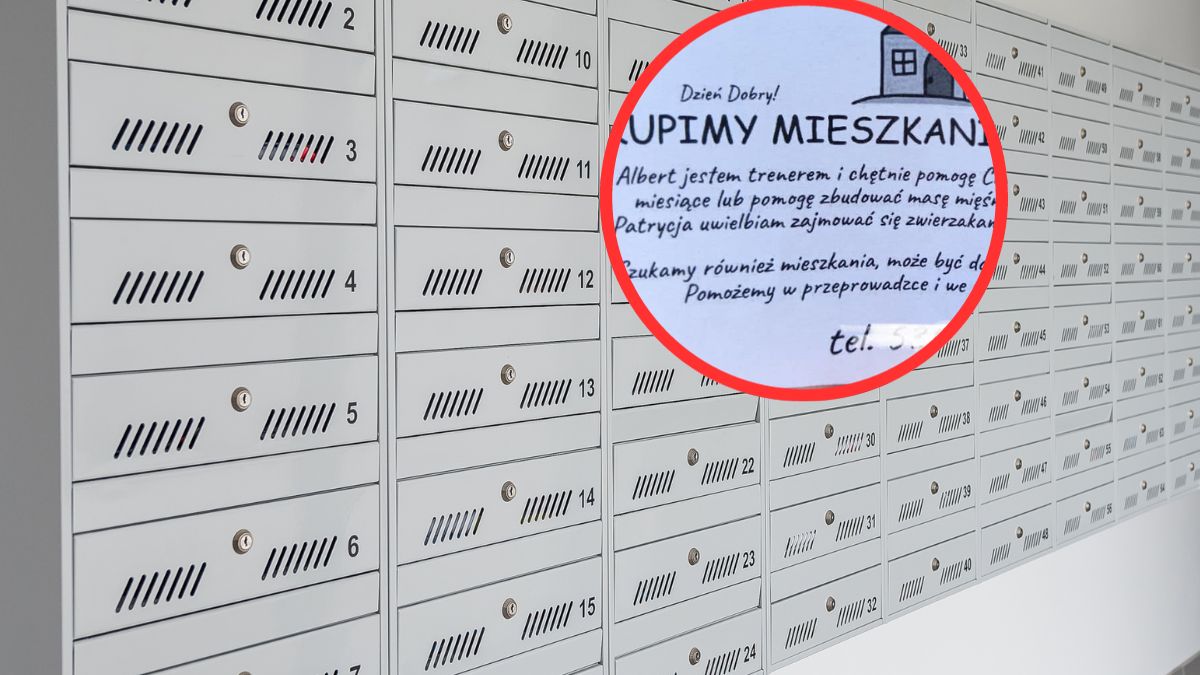 Dzień Dobry!
KUPIMY MIESZKANI
Albert jestem trenerem i chętnie pomogę C
miesiące lub pomogę zbudować masę mięś
Patrycja uwielbiam zajmować się zwierzakam
Szukamy również mieszkania, może być do
Pomożemy w przeprowadzce i we
tel. 5
2
3
4
5
6
7
10
11
12
13
14
15
22
23
24
30
31
32
33
37
38
39
40
41
42
43
44
45
46
47
48
49
50
51
52
53
54
55
56
57
58
59
60
61
62
63
64